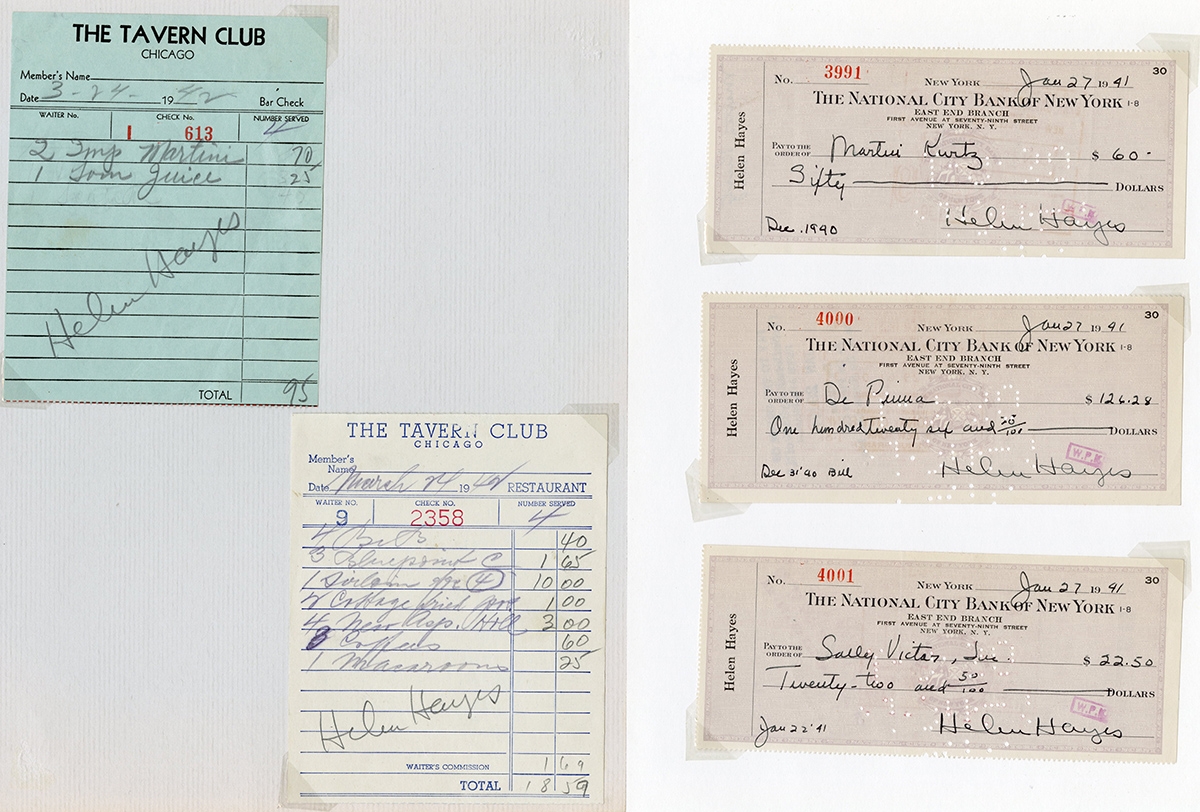 THE TAVERN CLUB
CHICAGO
Member's Name
Date 3-24- 1942 Bar Check
WAITER No. CHECK No. NUMBER SERVED
1 613 4
2 Imp Martini 70
1 Tom Juice 25
Helen Hayes
TOTAL 95
THE TAVERN CLUB
CHICAGO
Member's
Name
Date March 24 19 RESTAURANT
WAITER NO. CHECK NO. NUMBER SERVED
9 2358 4
4 B&B 40
3 Bluepoint C 1 65
1 Sirloin (4) 10 00
2 Cottage fried 1 00
4 New Asp. Holl 3 00
Coffees 60
1 Macaroons 25
Helen Hayes
WAITER'S COMMISSION 1 69
TOTAL 18 59
30
No. 3991 NEW YORK Jan 27 1941
THE NATIONAL CITY BANK OF NEW YORK 1-8
EAST END BRANCH
FIRST AVENUE AT SEVENTY-NINTH STREET
NEW YORK, N. Y.
Helen Hayes
PAY TO THE
ORDER OF Martin Kurtz $ 60-
Sixty DOLLARS
W.P.K
Dec. 1940 Helen Hayes
30
No. 4000 NEW YORK Jan 27 1941
THE NATIONAL CITY BANK OF NEW YORK 1-8
EAST END BRANCH
FIRST AVENUE AT SEVENTY-NINTH STREET
NEW YORK, N. Y.
Helen Hayes
PAY TO THE
ORDER OF De Pinna $ 126.28
One hundred twenty six and 28/100 DOLLARS
W.P.K
Dec 31 '40 Bill Helen Hayes
30
No. 4001 NEW YORK Jan 27 1941
THE NATIONAL CITY BANK OF NEW YORK 1-8
EAST END BRANCH
FIRST AVENUE AT SEVENTY-NINTH STREET
NEW YORK, N. Y.
Helen Hayes
PAY TO THE
ORDER OF Sally Victor, Inc. $ 22.50
Twenty-two and 50/100 DOLLARS
W.P.K
Jan 22 '41 Helen Hayes